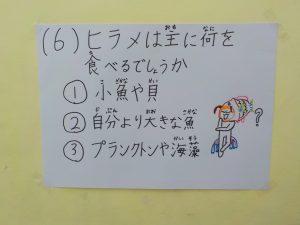 (6)ヒラメは主に何を
食べるでしょうか
①小魚や貝
②自分より大きな魚
③プランクトンや海藻
?